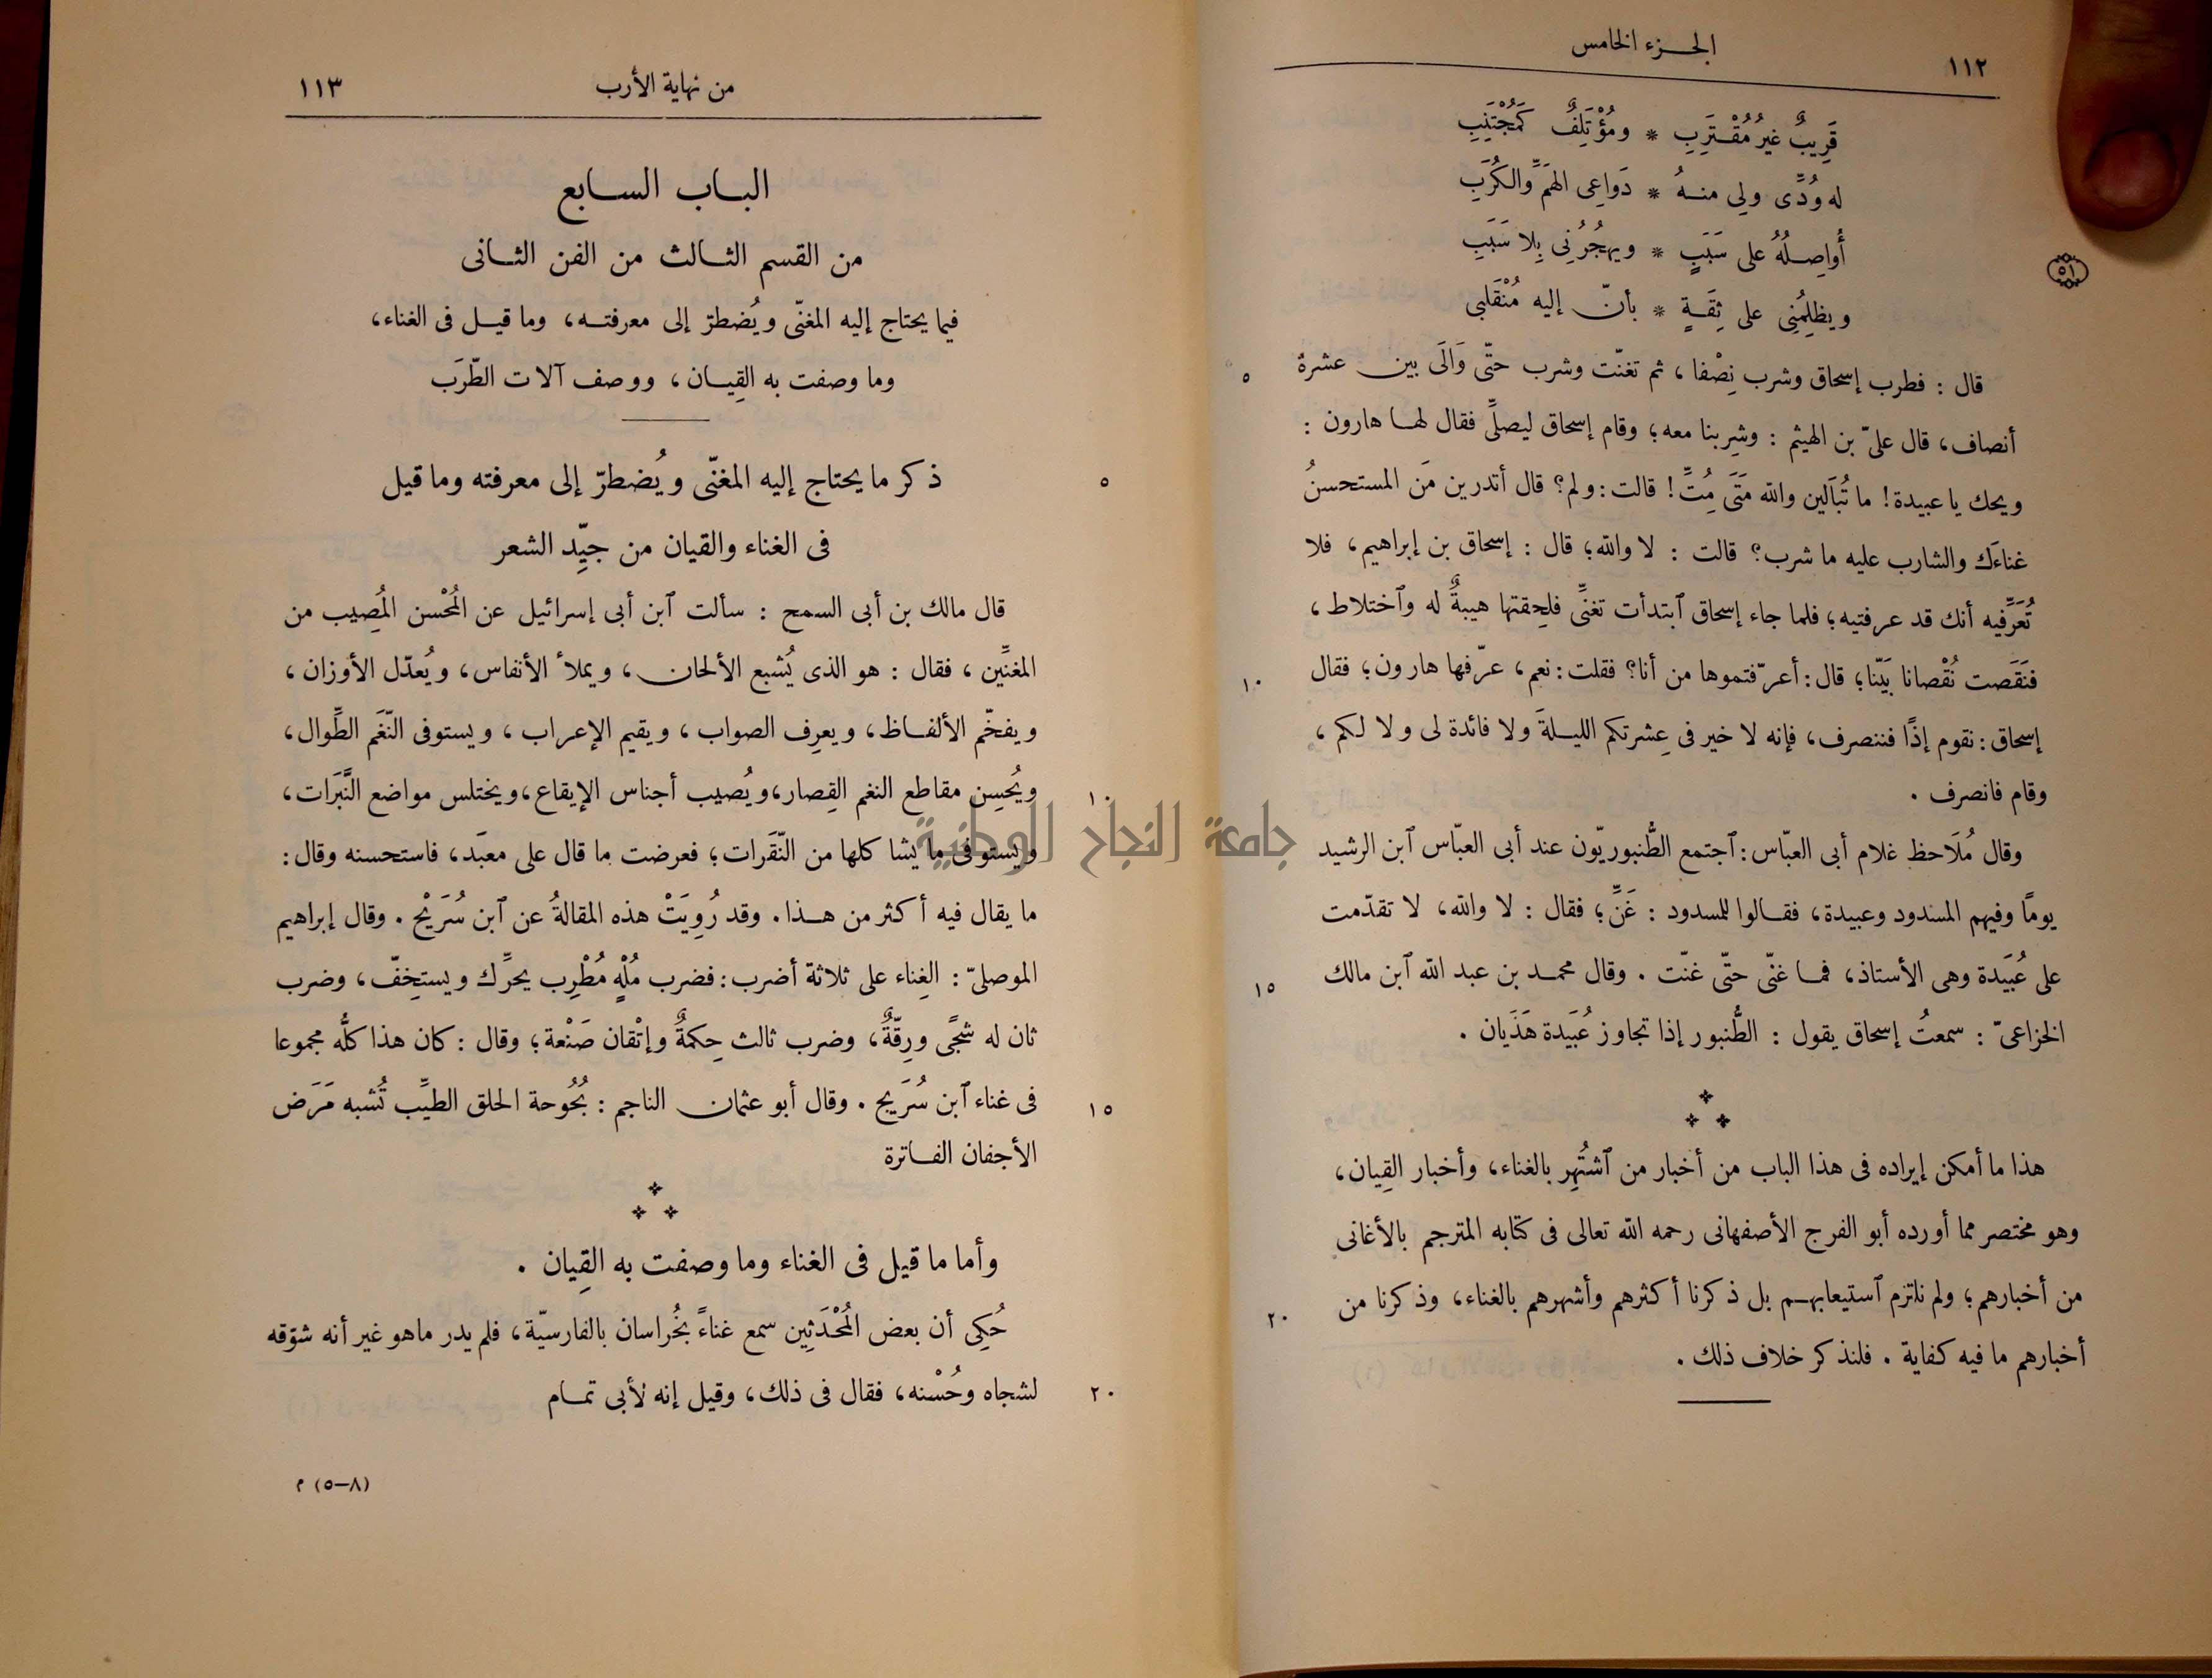 ١١٢
الجزء الخامس
قَرِيبٌ غيرُ مُقْتَرِبِ * ومُؤْتَلِفٌ كَمُجْتَنِبِ
له وُدِّى ولِى منهُ * دَواعِى الهَمِّ والكُرَبِ
أُواصِلُهُ على سَبَبٍ * ويهجُرُنِى بِلا سَبَبِ
٥١
ويظلِمُنِى على ثِقَةٍ * بأنّ إليه مُنْقَلبى
قال : فطرب إسحاق وشرب نِصْفا ، ثم تغنّت وشرب حتّى وَالَى بين عشرة
٥
أنصاف، قال علىّ بن الهيثم : وشرِبنا معه؛ وقام إسحاق ليصلِّى فقال لها هارون :
ويحك يا عبيدة! ما تُبَالَين والله مَتَى مُِتِّ! قالت : ولم؟ قال أتدرين مَن المستحسنُ
غناءَك والشارب عليه ما شرب؟ قالت : لا والله؛ قال : إسحاق بن إبراهيم، فلا
تُعَرِّفيه أنك قد عرفتيه؛ فلما جاء إسحاق ٱبتدأت تغنِّى فلحِقتها هيبةٌ له وٱختلاط ،
فنَقَصت نُقْصانا بَيّنا؛ قال : أعرّفتموها من أنا؟ فقلت : نعم، عرّفها هارون؛ فقال
١٠
إسحاق : نقوم إذًا فننصرف، فإنه لا خير فى عِشرتكم الليلةَ ولا فائدة لى ولا لكم ،
وقام فانصرف .
وقال مُلَاحظ غلام أبى العبّاس : ٱجتمع الطُّنبوريّون عند أبى العبّاس ٱبن الرشيد
يومًا وفيهم المسدود وعبيدة، فقالوا للمسدود : غَنِّ؛ فقال : لا والله، لا تقدّمت
على عُبَيدة وهى الأستاذ، فما غنّى حتّى غنّت . وقال محمد بن عبد الله ٱبن مالك
١٥
الخزاعىّ : سمعتُ إسحاق يقول : الطُّنبور إذا تجاوز عُبَيدة هَذَيان .
هذا ما أمكن إيراده فى هذا الباب من أخبار من ٱشتُهِر بالغناء، وأخبار القِيان،
وهو مختصر مما أورده أبو الفرج الأصفهانى رحمه الله تعالى فى كتابه المترجم بالأغانى
من أخبارهم؛ ولم نلتزم ٱستيعابهم بل ذكرنا أكثرهم وأشهرهم بالغناء، وذكرنا من
٢٠
أخبارهم ما فيه كفاية . فلنذكر خلاف ذلك .
من نهاية الأرب
١١٣
الباب السابع
من القسم الثالث من الفن الثانى
فيما يحتاج إليه المغنّى ويُضطرّ إلى معرفته، وما قيل فى الغناء،
وما وصفت به القِيان، ووصف آلات الطّرَب
ذكر ما يحتاج إليه المغنّى ويُضطرّ إلى معرفته وما قيل
٥
فى الغناء والقيان من جيِّد الشعر
قال مالك بن أبى السمح : سألت ٱبن أبى إسرائيل عن المُحْسن المُصِيب من
المغنِّين ، فقال : هو الذى يُشبع الألحان ، ويملأ الأنفاس، ويُعدّل الأوزان ،
ويفخّم الألفاظ، ويعرِف الصواب ، ويقيم الإعراب ، ويستوفى النّغَم الطِّوال،
ويُحسِن مقاطع النغم القِصار، ويُصيب أجناس الإيقاع، ويختلس مواضع النَّبَرات،
١٠
ويستوفى ما يشاكلها من النّقَرات؛ فعرضت ما قال على معبَد، فاستحسنه وقال :
ما يقال فيه أكثر من هذا . وقد رُوِيَتْ هذه المقالةُ عن ٱبن سُرَيْج . وقال إبراهيم
الموصلىّ : الغِناء على ثلاثة أضرب : فضرب مُلْهٍ مُطْرِب يحرِّك ويستخِفّ، وضرب
ثان له شجًى ورِقّةٌ، وضرب ثالث حِكمةٌ وإتْقان صَنْعة؛ وقال : كان هذا كلُّه مجموعا
فى غناء ٱبن سُرَيج . وقال أبو عثمان الناجم : بُحُوحة الحلق الطيِّب تُشبه مَرَض
١٥
الأجفان الفاترة
وأما ما قيل فى الغناء وما وصفت به القِيان .
حُكِى أن بعض المُحْدَثِين سمع غناءً بخُراسان بالفارسيّة، فلم يدر ماهو غير أنه شوّقه
لشجاه وحُسْنه، فقال فى ذلك، وقيل إنه لأبى تمام
٢٠
(٨–٥) م
جامعة النجاح الوطنية